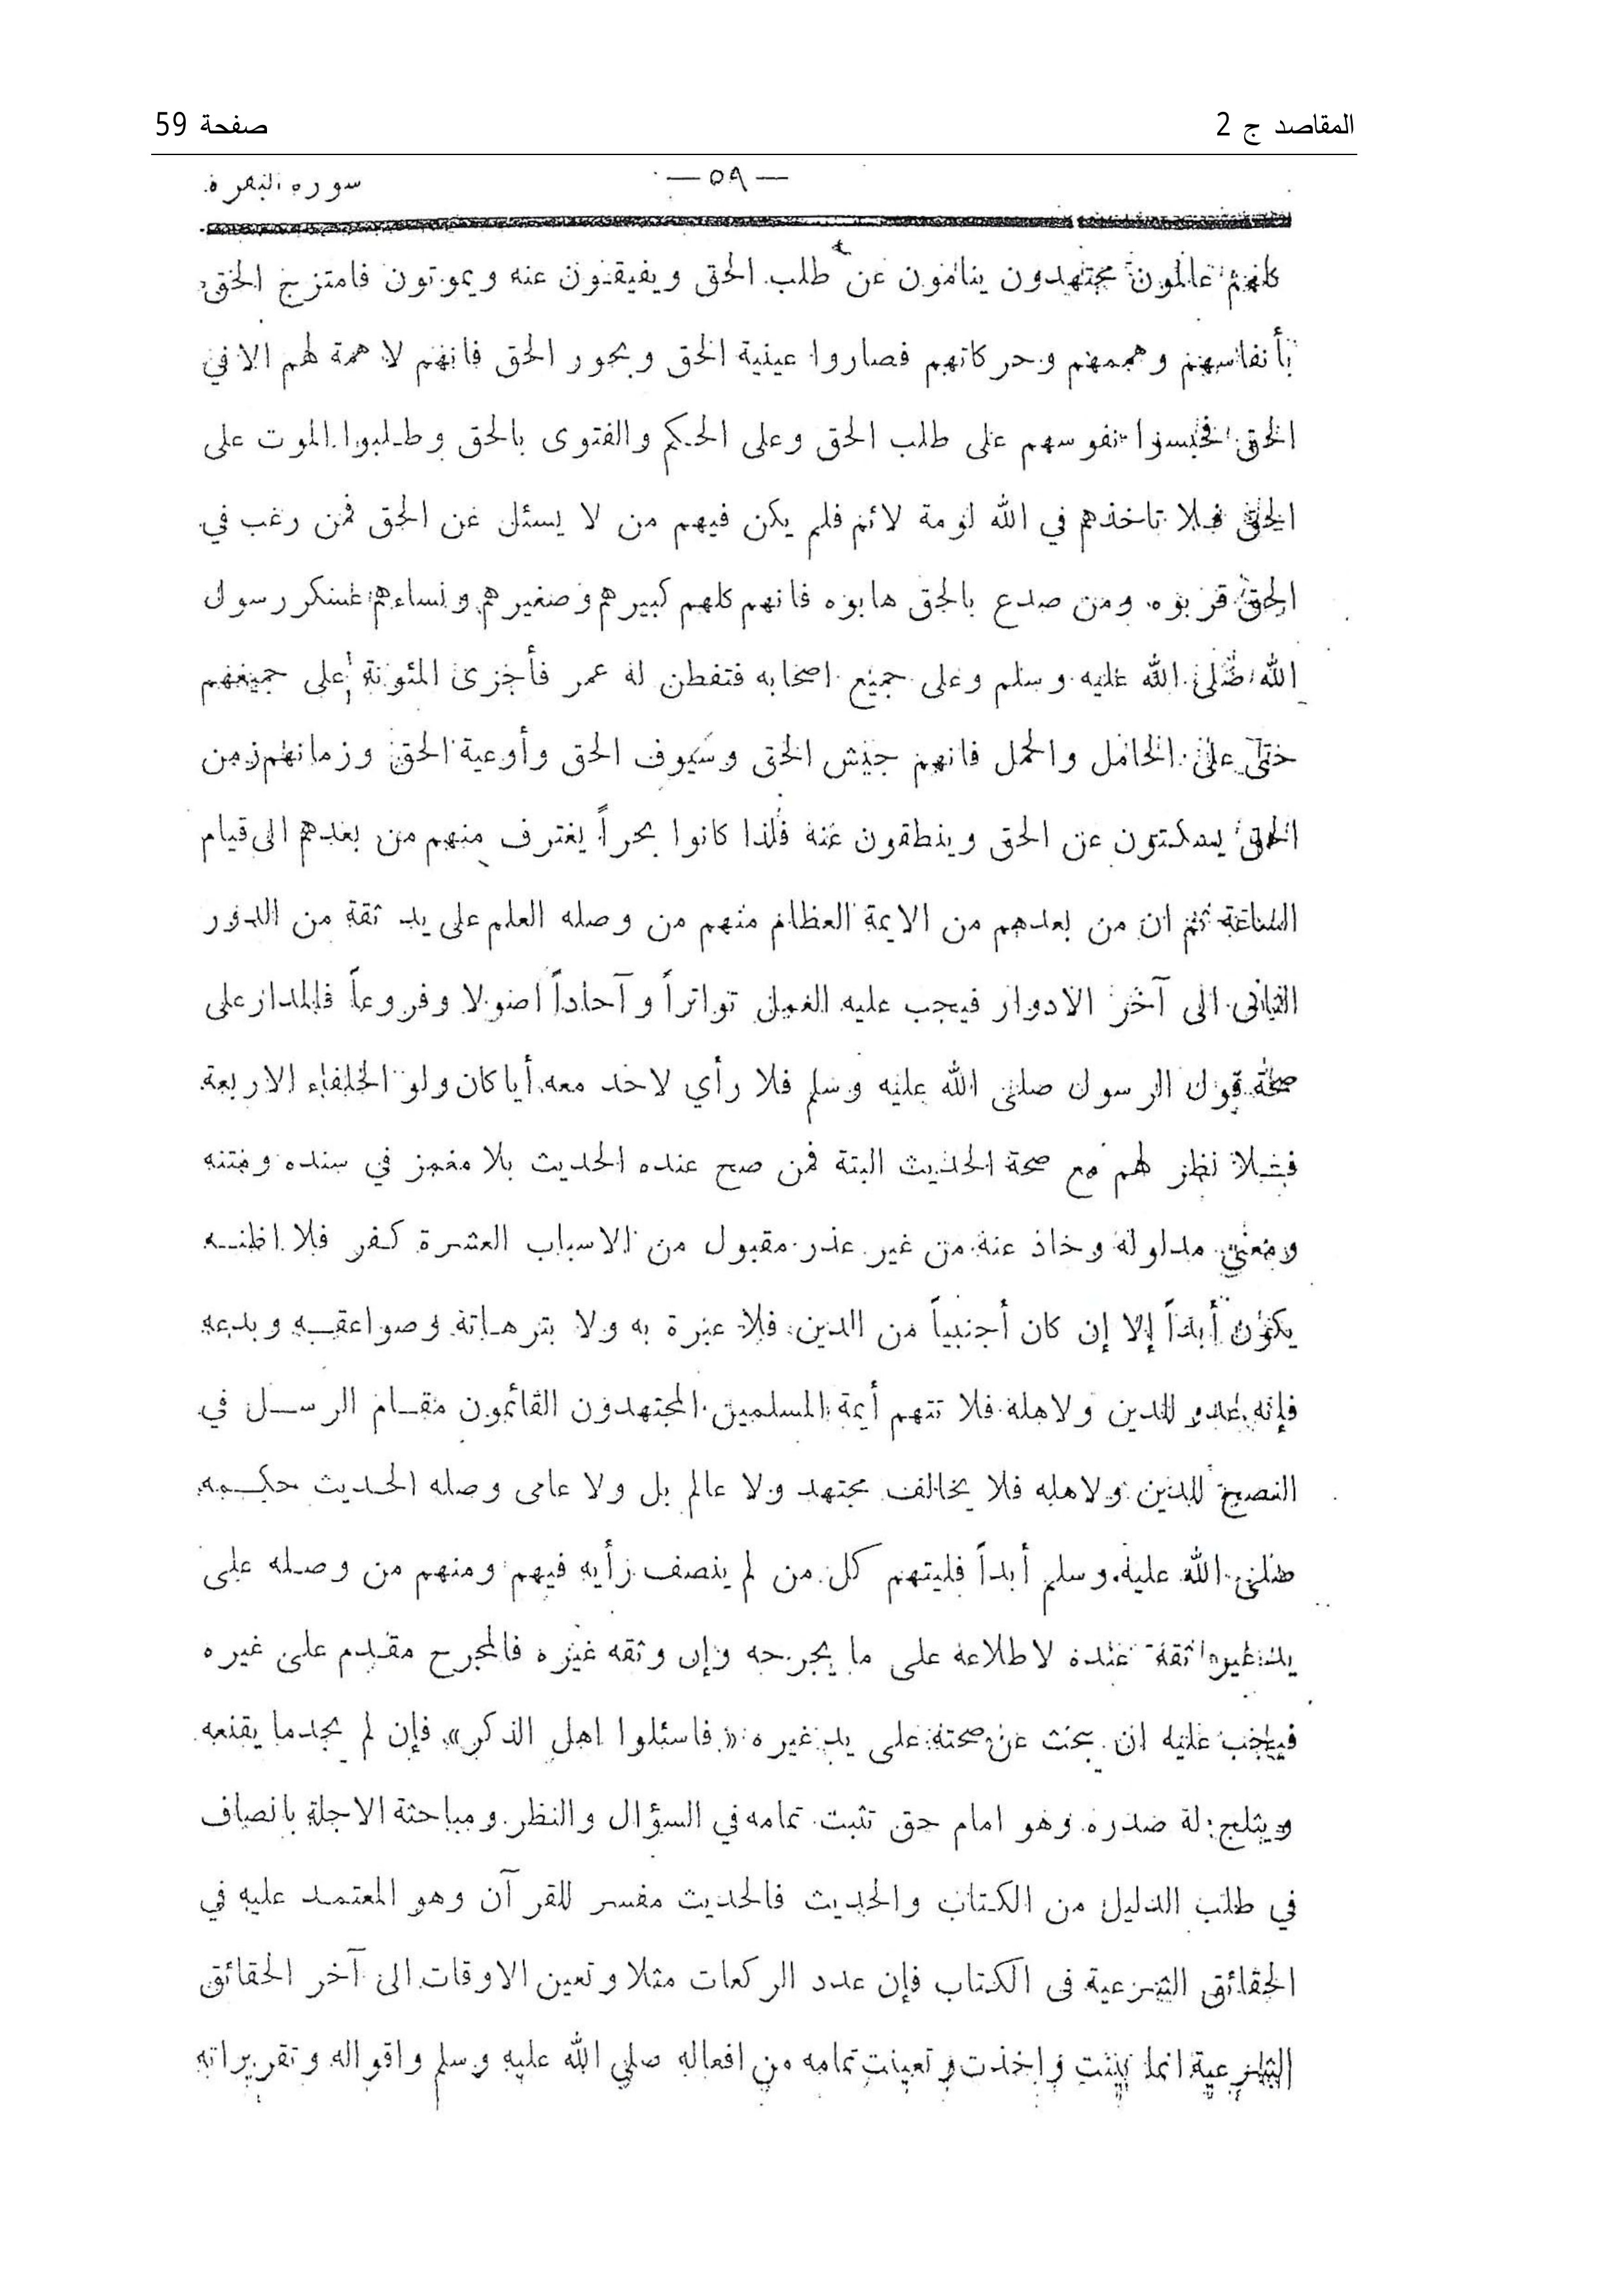 المقاصد ج 2
صفحة 59
— ٥٩ —
سورة البقرة
كانهم عالمون مجتهدون ينامون عن طلب الحق ويفيقون عنه ويموتون فامتزج الحق
بأنفاسهم وهممهم وحركاتهم فصاروا عينية الحق وبحور الحق فانهم لا همة لهم الا في
الحق فحبسوا نفوسهم على طلب الحق وعلى الحكم والفتوى بالحق وطلبوا الموت على
الحق فلا تاخذهم في الله لومة لائم فلم يكن فيهم من لا يسئل عن الحق فمن رغب في
الحق قربوه ومن صدع بالحق هابوه فانهم كلهم كبيرهم وصغيرهم ونساءهم عسكر رسول
الله صلى الله عليه وسلم وعلى جميع اصحابه فتفطن له عمر فأجزى المئونة على جميعهم
حتى على الحامل والحمل فانهم جيش الحق وسيوف الحق وأوعية الحق وزمانهم زمن
الحق يسكتون عن الحق وينطقون عنه فلذا كانوا بحراً يغترف منهم من بعدهم الى قيام
الساعة ثم ان من بعدهم من الايمة العظام منهم من وصله العلم على يد ثقة من الدور
الثانى الى آخر الادوار فيجب عليه العمل تواتراً و آحاداً اصولا وفروعاً فالمدار على
صحة قول الرسول صلى الله عليه وسلم فلا رأي لاحد معه أيا كان ولو الخلفاء الاربعة
فلا نظر لهم مع صحة الحديث البتة فمن صح عنده الحديث بلا مغمز في سنده ومتنه
ومعنى مدلوله وحاد عنه من غير عذر مقبول من الاسباب العشرة كفر فلا اظنه
يكون أبداً إلا إن كان أجنبياً من الدين فلا عبرة به ولا بترهاته وصواعقه وبدعه
فإنه عدو للدين ولاهله فلا تتهم أيمة المسلمين المجتهدون القائمون مقام الرسل في
النصح للدين ولاهله فلا يخالف مجتهد ولا عالم بل ولا عامى وصله الحديث حكمه
صلى الله عليه وسلم أبداً فليتهم كل من لم ينصف رأيه فيهم ومنهم من وصله على
يد غير ثقة عنده لاطلاعه على ما يجرحه وإن وثقه غيره فالمجرح مقدم على غيره
فيجب عليه ان يبحث عن صحته على يد غيره « فاسئلوا اهل الذكر » فإن لم يجد ما يقنعه
ويثلج له صدره وهو امام حق تثبت تمامه في السؤال والنظر ومباحثة الاجلة بانصاف
في طلب الدليل من الكتاب والحديث فالحديث مفسر للقرآن وهو المعتمد عليه في
الحقائق الشرعية فى الكتاب فإن عدد الركعات مثلا وتعين الاوقات الى آخر الحقائق
الشرعية انما بينت واخذت وتعينت تمامه من افعاله صلى الله عليه وسلم واقواله وتقريراته